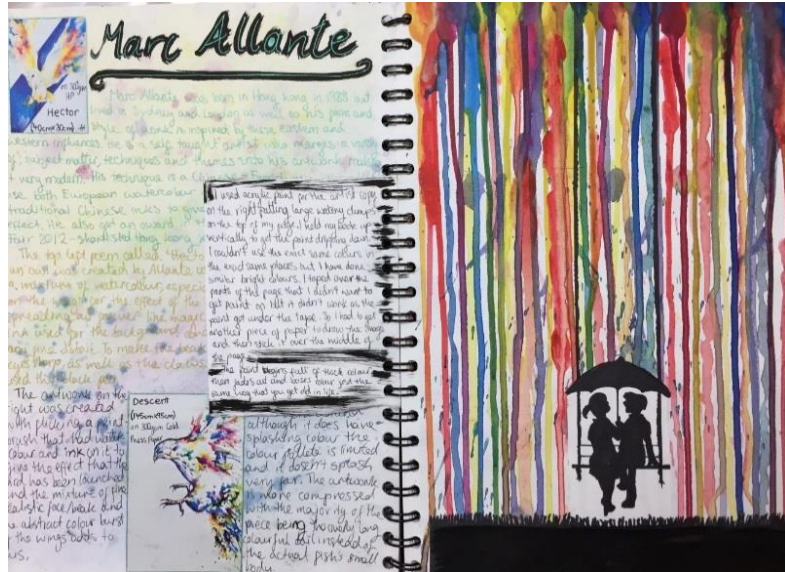 Marc Allante
on 300gsm
HP
Hector
(40cm x 30cm)
Marc Allante was born in Hong Kong in 1988 but
in Sydney and London as well so his pen and
style of ink is inspired by these eastern and
western influences. He is a self taught artist who merges a variety
of subject matter, techniques and themes into his artwork making
it very modern. His technique is a Chinese
use both European watercolour
traditional Chinese inks to give
effect. He also got an award
Fair 2012 - shortlisted Hong Kong
The top left poem called "Hector"
an owl was created by Allante
a mixture of watercolour, especially
on the wings for the effect of the
spreading of power like magic
ink used for the background and
and fine detail. To make the beak
sharp, as well as the claws
used the black pen
The artwork on the
right was created
with flicking a paint
brush that had water
colour and ink on it to
give the effect that the
bird has been launched
and the mixture of fine
realistic face/beak and
the abstract colour burst
of the wings adds to
this.
I used acrylic paint for the artist copy
on the right putting large watery clumps
on the top of my page. I held my book up
vertically to get the paint dripping down.
I couldn't use the exact same colours in
the exact same places but I have done
similar bright colours. I taped over the
parts of the page that I didn't want to
get paint on but it didn't work as the
paint got under the tape. So I had to get
another piece of paper to draw the swings
and then stick it over the middle of
the page.
The paint begins full of thick colour
then fades out and loses colour just the
same way that you get old in life.
Descent
(145cm x 95cm)
on 300gsm Cold
Press Paper
although it does have
splashing colour the
colour palete is limited
and it doesn't splash
very far. The artwork
is more compressed
with the majority of the
piece being the overly long
colourful tail instead of
the actual fish's small
body.